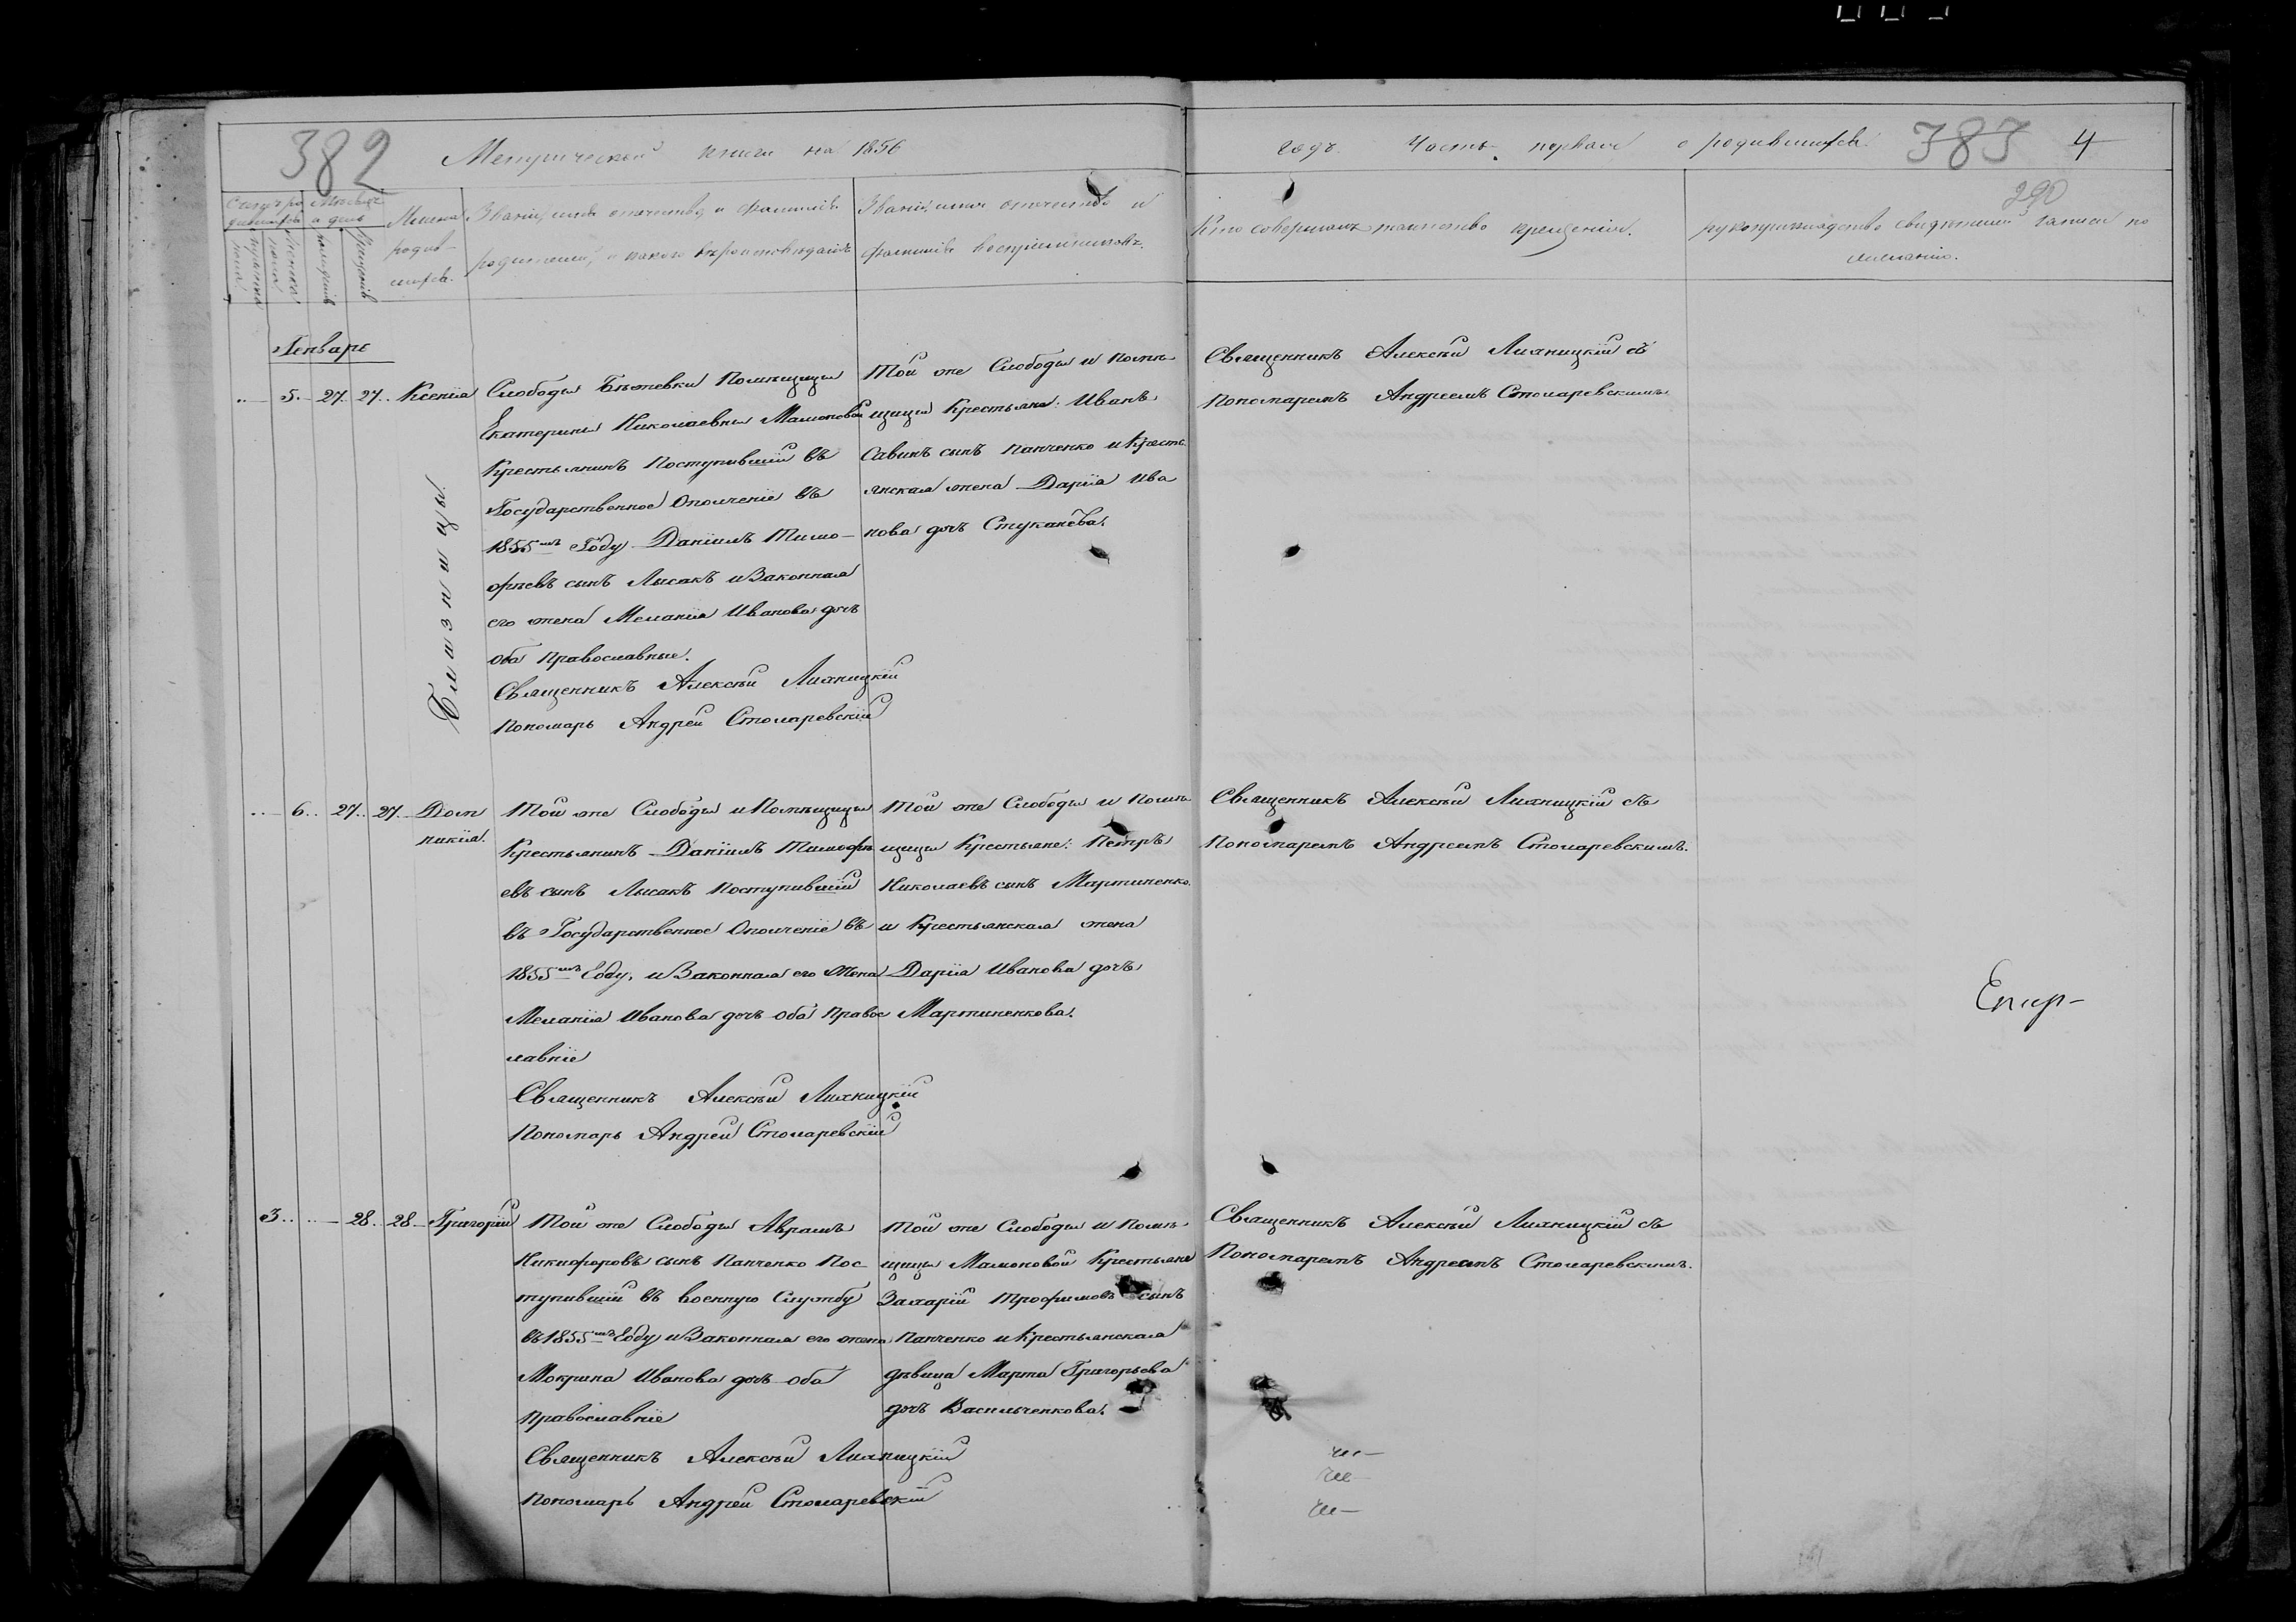 382
Метрической книги на 1856
годъ. Часть первая о родившихся.
383 4
290
Счетъ ро
дившихся
Мѣсяцъ
и день
мужеска
пола
женска
пола
рожденія
крещенія
Имена
родив-
шихся.
Званіе, имя отчество и фамилія
родителей, и какого вѣроисповѣданія
Званіе, имя отчество и
фамилія воспріемниковъ.
Кто совершалъ таинство крещенія.
рукоприкладство свидѣтелей записи по
желанію.
Генварь
5. 27. 27. Ксенія
Близницы.
Слободы Бѣжевки Помѣщицы
Екатерины Николаевны Мамоновой
Крестьянинъ Поступившій въ
Государственное Ополченіе въ
1855мъ Году Даніилъ Тимо-
фѣевъ сынъ Лысакъ и Законная
его жена Меланія Иванова дочь
оба Православные.
Священникъ Алексѣй Лихницкій
Пономарь Андрей Столяревскій
Той же Слободы и помѣ-
щицы Крестьяне: Иванъ
Савинъ сынъ Панченко и Кресть
янская жена Дарія Ива
нова дочь Стуканева.
Священникъ Алексѣй Лихницкій съ
Пономаремъ Андреемъ Столяревскимъ
6. 27. 27. Дом
никія.
Той же Слободы и Помѣщицы
Крестьянинъ Даніилъ Тимофѣ
евъ сынъ Лысакъ Поступившій
въ Государственное Ополченіе въ
1855мъ Году, и Законная его Жена
Меланія Иванова дочь оба Правос
лавніе
Священникъ Алексѣй Лихницкій
Пономарь Андрей Столяревскій
Той же Слободы и Помѣ
щицы Крестьяне: Петръ
Николаевъ сынъ Мартиненко
и Крестьянская жена
Дарія Иванова дочь
Мартиненкова.
Священникъ Алексѣй Лихницкій съ
Пономаремъ Андреемъ Столяревскимъ.
3. 28. 28. Григорій
Той же Слободы Аврамъ
Никифоровъ сынъ Панченко Пос-
тупившій въ военную Службу
въ 1855мъ Году и Законная его жена
Мокрина Иванова дочь оба
Православніе
Священникъ Алексѣй Лихницкій
Пономарь Андрей Столяревскій
Той же Слободы и Помѣ-
щицы Мамоновой Крестьяне
Захарій Трофимовъ сынъ
Панченко и Крестьянская
дѣвица Марта Григорьева
дочь Васильченкова.
Священникъ Алексѣй Лихницкій съ
Пономаремъ Андреемъ Столяревскимъ.